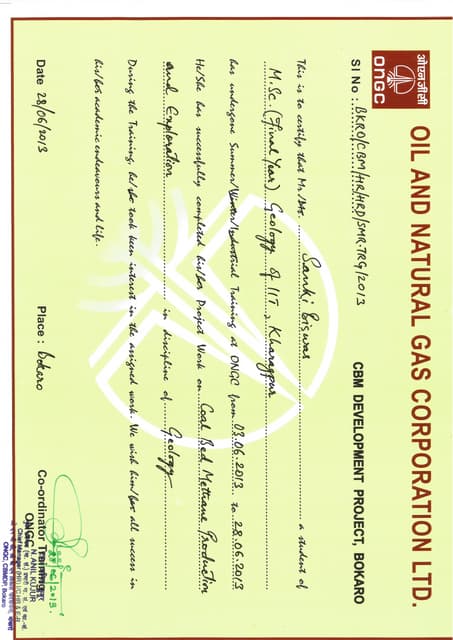 ओएनजीसी
ONGC
OIL AND NATURAL GAS CORPORATION LTD.
SI No : BKRO/CBM/HR/HRD/SMR.TRG/2013
CBM DEVELOPMENT PROJECT, BOKARO
This is to certify that Mr/Ms. Sanki Biswas a student of
M.Sc. (Final Year) Geology of IIT, Kharagpur
has undergone Summer/Winter/Industrial Training at ONGC from 03.06.2013 to 28.06.2013
He/She has successfully completed his/her Project Work on Coal Bed Methane Production
and Exploration in discipline of Geology
During the Training, he/she took keen interest in the assigned work. We wish him/her all success in
his/her academic endeavours and life.
28/06/2013.
Date 28/06/2013
Place : Bokaro
Co-ordinator Training
ONGC
N. ANIL KUJUR
Chief Manager (HR) I/C HR & E-R
ONGC, CBMDP, Bokaro